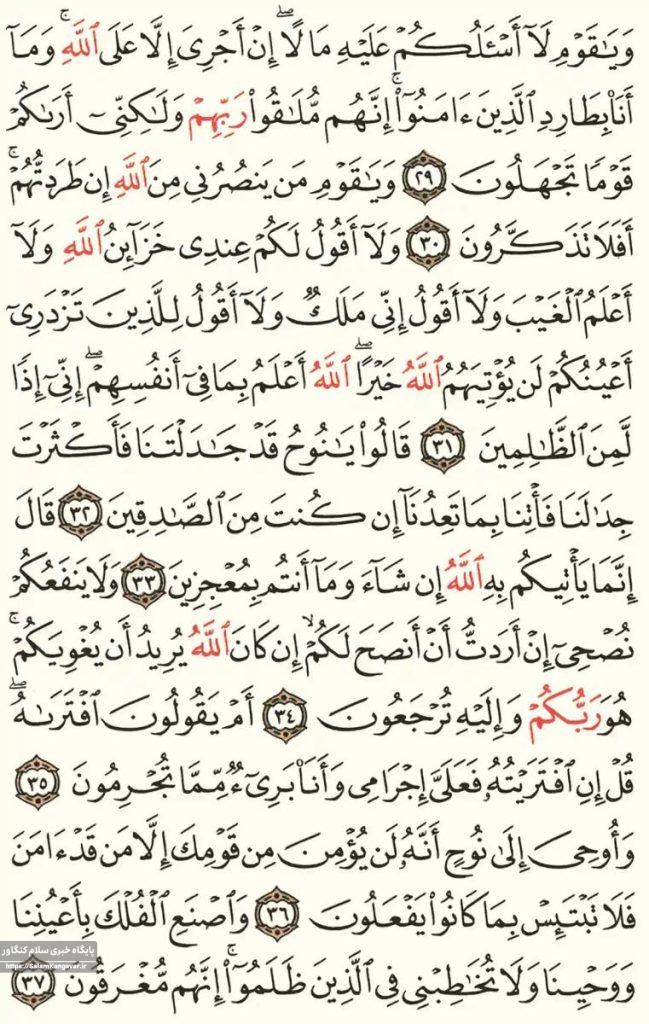 وَيَٰقَوْمِ لَآ أَسْـَٔلُكُمْ عَلَيْهِ مَالًاۖ إِنْ أَجْرِيَ إِلَّا عَلَى ٱللَّهِۚ وَمَآ
أَنَا۠ بِطَارِدِ ٱلَّذِينَ ءَامَنُوٓا۟ۚ إِنَّهُم مُّلَٰقُوا۟ رَبِّهِمْ وَلَٰكِنِّيٓ أَرَىٰكُمْ
قَوْمًا تَجْهَلُونَ ٢٩ وَيَٰقَوْمِ مَن يَنصُرُنِي مِنَ ٱللَّهِ إِن طَرَدتُّهُمْۚ
أَفَلَا تَذَكَّرُونَ ٣٠ وَلَآ أَقُولُ لَكُمْ عِندِي خَزَآئِنُ ٱللَّهِ وَلَآ
أَعْلَمُ ٱلْغَيْبَ وَلَآ أَقُولُ إِنِّي مَلَكٌ وَلَآ أَقُولُ لِلَّذِينَ تَزْدَرِيٓ
أَعْيُنُكُمْ لَن يُؤْتِيَهُمُ ٱللَّهُ خَيْرًاۖ ٱللَّهُ أَعْلَمُ بِمَا فِيٓ أَنفُسِهِمْۖ إِنِّيٓ إِذًا
لَّمِنَ ٱلظَّٰلِمِينَ ٣١ قَالُوا۟ يَٰنُوحُ قَدْ جَٰدَلْتَنَا فَأَكْثَرْتَ
جِدَٰلَنَا فَأْتِنَا بِمَا تَعِدُنَآ إِن كُنتَ مِنَ ٱلصَّٰدِقِينَ ٣٢ قَالَ
إِنَّمَا يَأْتِيكُم بِهِ ٱللَّهُ إِن شَآءَ وَمَآ أَنتُم بِمُعْجِزِينَ ٣٣ وَلَا يَنفَعُكُمْ
نُصْحِيٓ إِنْ أَرَدتُّ أَنْ أَنصَحَ لَكُمْ إِن كَانَ ٱللَّهُ يُرِيدُ أَن يُغْوِيَكُمْۚ
هُوَ رَبُّكُمْ وَإِلَيْهِ تُرْجَعُونَ ٣٤ أَمْ يَقُولُونَ ٱفْتَرَىٰهُۖ
قُلْ إِنِ ٱفْتَرَيْتُهُۥ فَعَلَيَّ إِجْرَامِي وَأَنَا۠ بَرِيٓءٌ مِّمَّا تُجْرِمُونَ ٣٥
وَأُوحِيَ إِلَىٰ نُوحٍ أَنَّهُۥ لَن يُؤْمِنَ مِن قَوْمِكَ إِلَّا مَن قَدْ ءَامَنَ
فَلَا تَبْتَئِسْ بِمَا كَانُوا۟ يَفْعَلُونَ ٣٦ وَٱصْنَعِ ٱلْفُلْكَ بِأَعْيُنِنَا
وَوَحْيِنَا وَلَا تُخَٰطِبْنِي فِي ٱلَّذِينَ ظَلَمُوٓا۟ۚ إِنَّهُم مُّغْرَقُونَ ٣٧
پایگاه خبری سلام کنگاور
https://SalamKangavar.ir